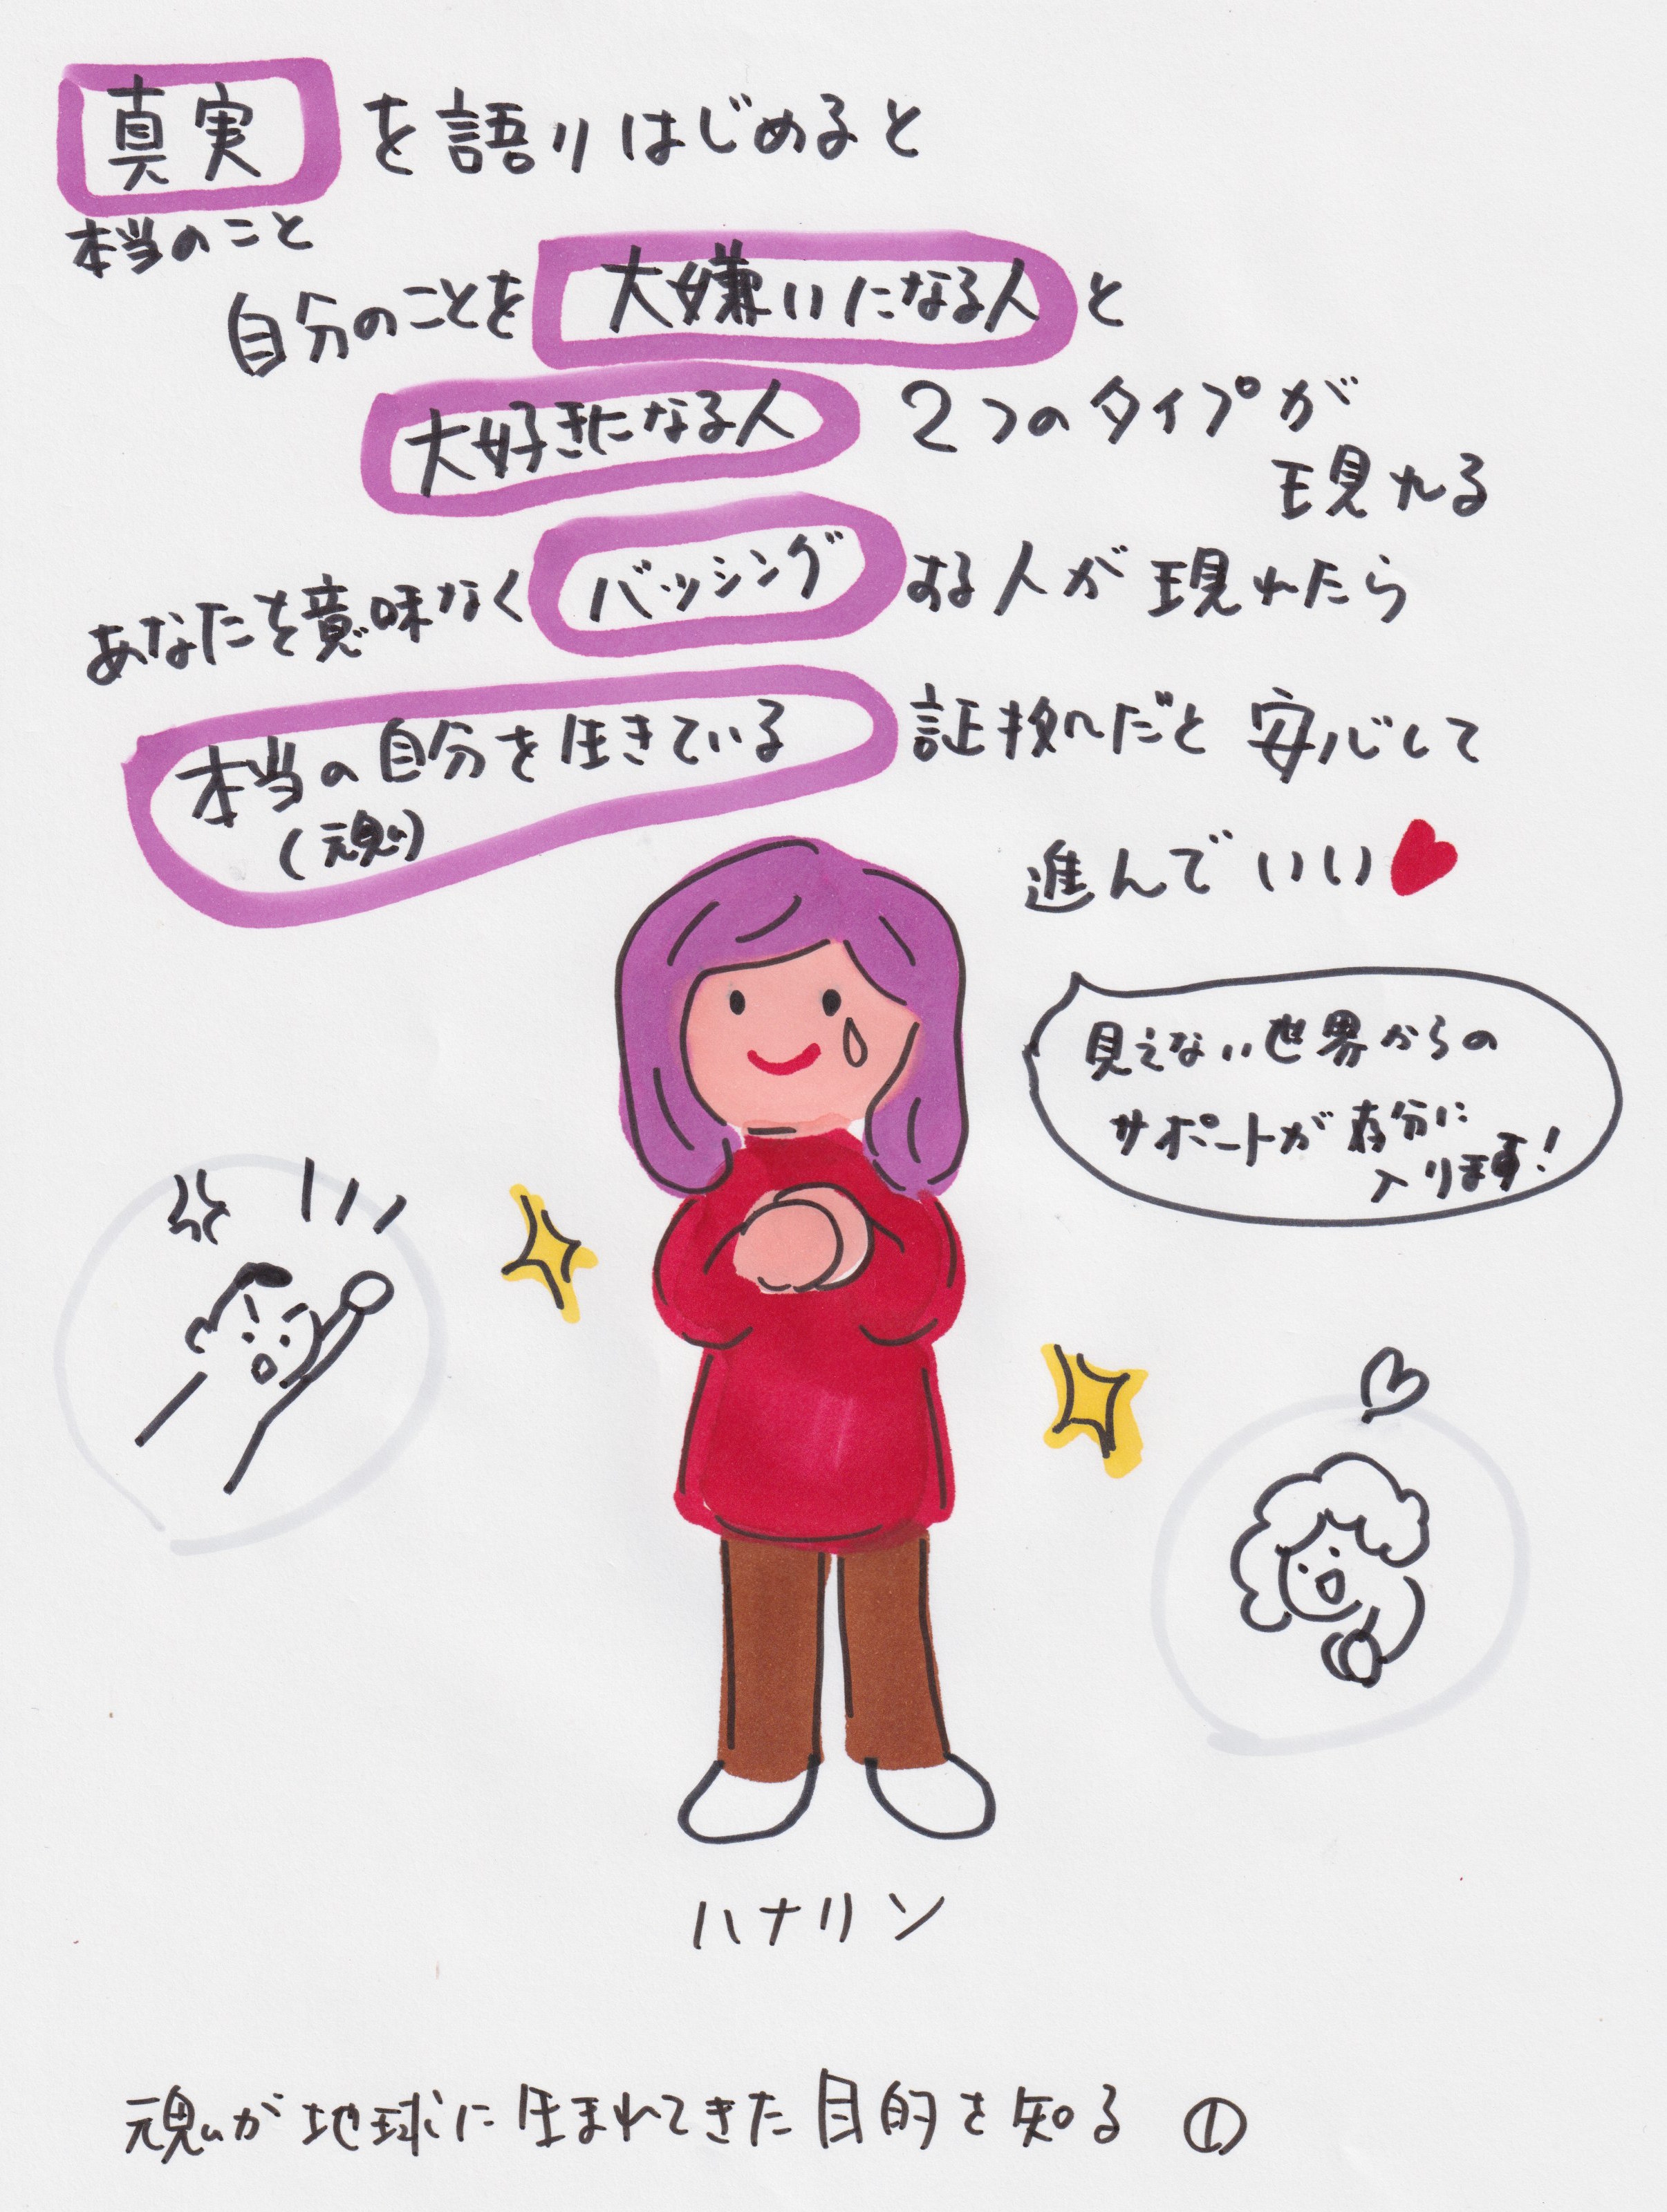 真実を語りはじめると
本当のこと
自分のことを大嫌いになる人と
大好きになる人 2つのタイプが
現れる
あなたを意味なくバッシングする人が現れたら
本当の自分を生きている証拠だと安心して
(魂)
進んでいい
見えない世界からの
サポートが存分に
入ります!
ハナリン
魂が地球に生まれてきた目的を知る ①